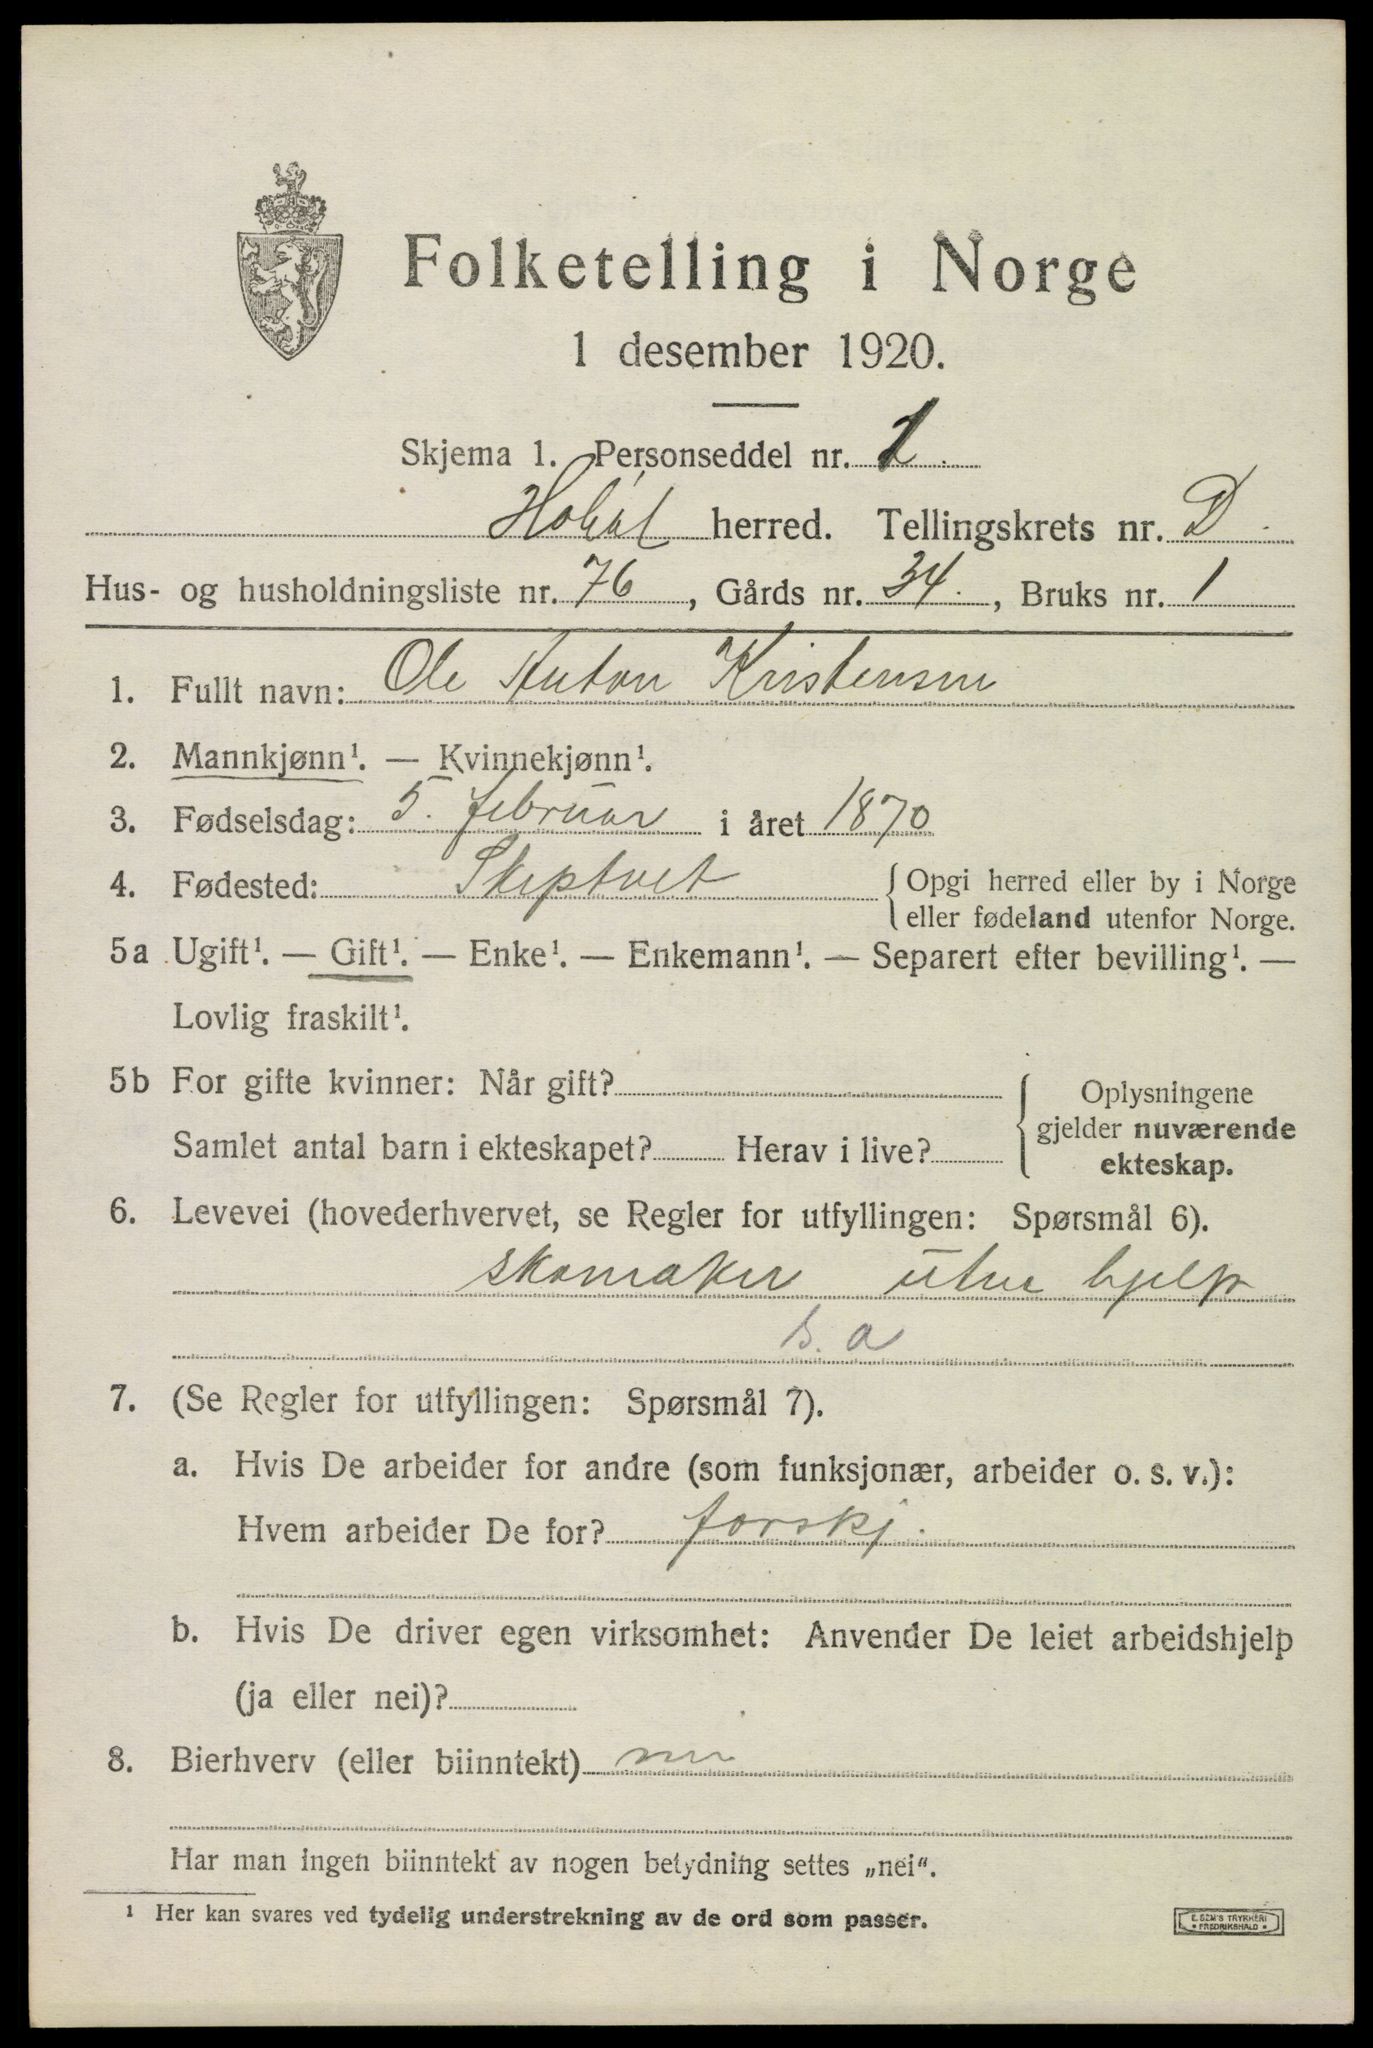 Folketelling i Norge
1 desember 1920.
Skjema 1. Personseddel nr. 1.
Hobøl herred. Tellingskrets nr. D.
Hus- og husholdningsliste nr. 76, Gårds nr. 34., Bruks nr. 1
1. Fullt navn: Ole Anton Kristensen
2. Mannkjønn¹. — Kvinnekjønn¹.
3. Fødselsdag: 5. februar i året 1870
4. Fødested: Skiptvet {Opgi herred eller by i Norge
eller fødeland utenfor Norge.
5a Ugift¹. — Gift¹. — Enke¹. — Enkemann¹. — Separert efter bevilling¹. —
Lovlig fraskilt¹.
5b For gifte kvinner: Når gift? { Oplysningene
gjelder nuværende
Samlet antal barn i ekteskapet? Herav i live?
ekteskap.
6. Levevei (hovederhvervet, se Regler for utfyllingen: Spørsmål 6).
skomaker uten hjelp
s. a
7. (Se Regler for utfyllingen: Spørsmål 7).
a. Hvis De arbeider for andre (som funksjonær, arbeider o. s. v.):
Hvem arbeider De for? forskj.
b. Hvis De driver egen virksomhet: Anvender De leiet arbeidshjelp
(ja eller nei)?
8. Bierhverv (eller biinntekt) nei
Har man ingen biinntekt av nogen betydning settes „nei".
¹ Her kan svares ved tydelig understrekning av de ord som passer.
E. SEM'S TRYKKERI
• FREDRIKSHALD •